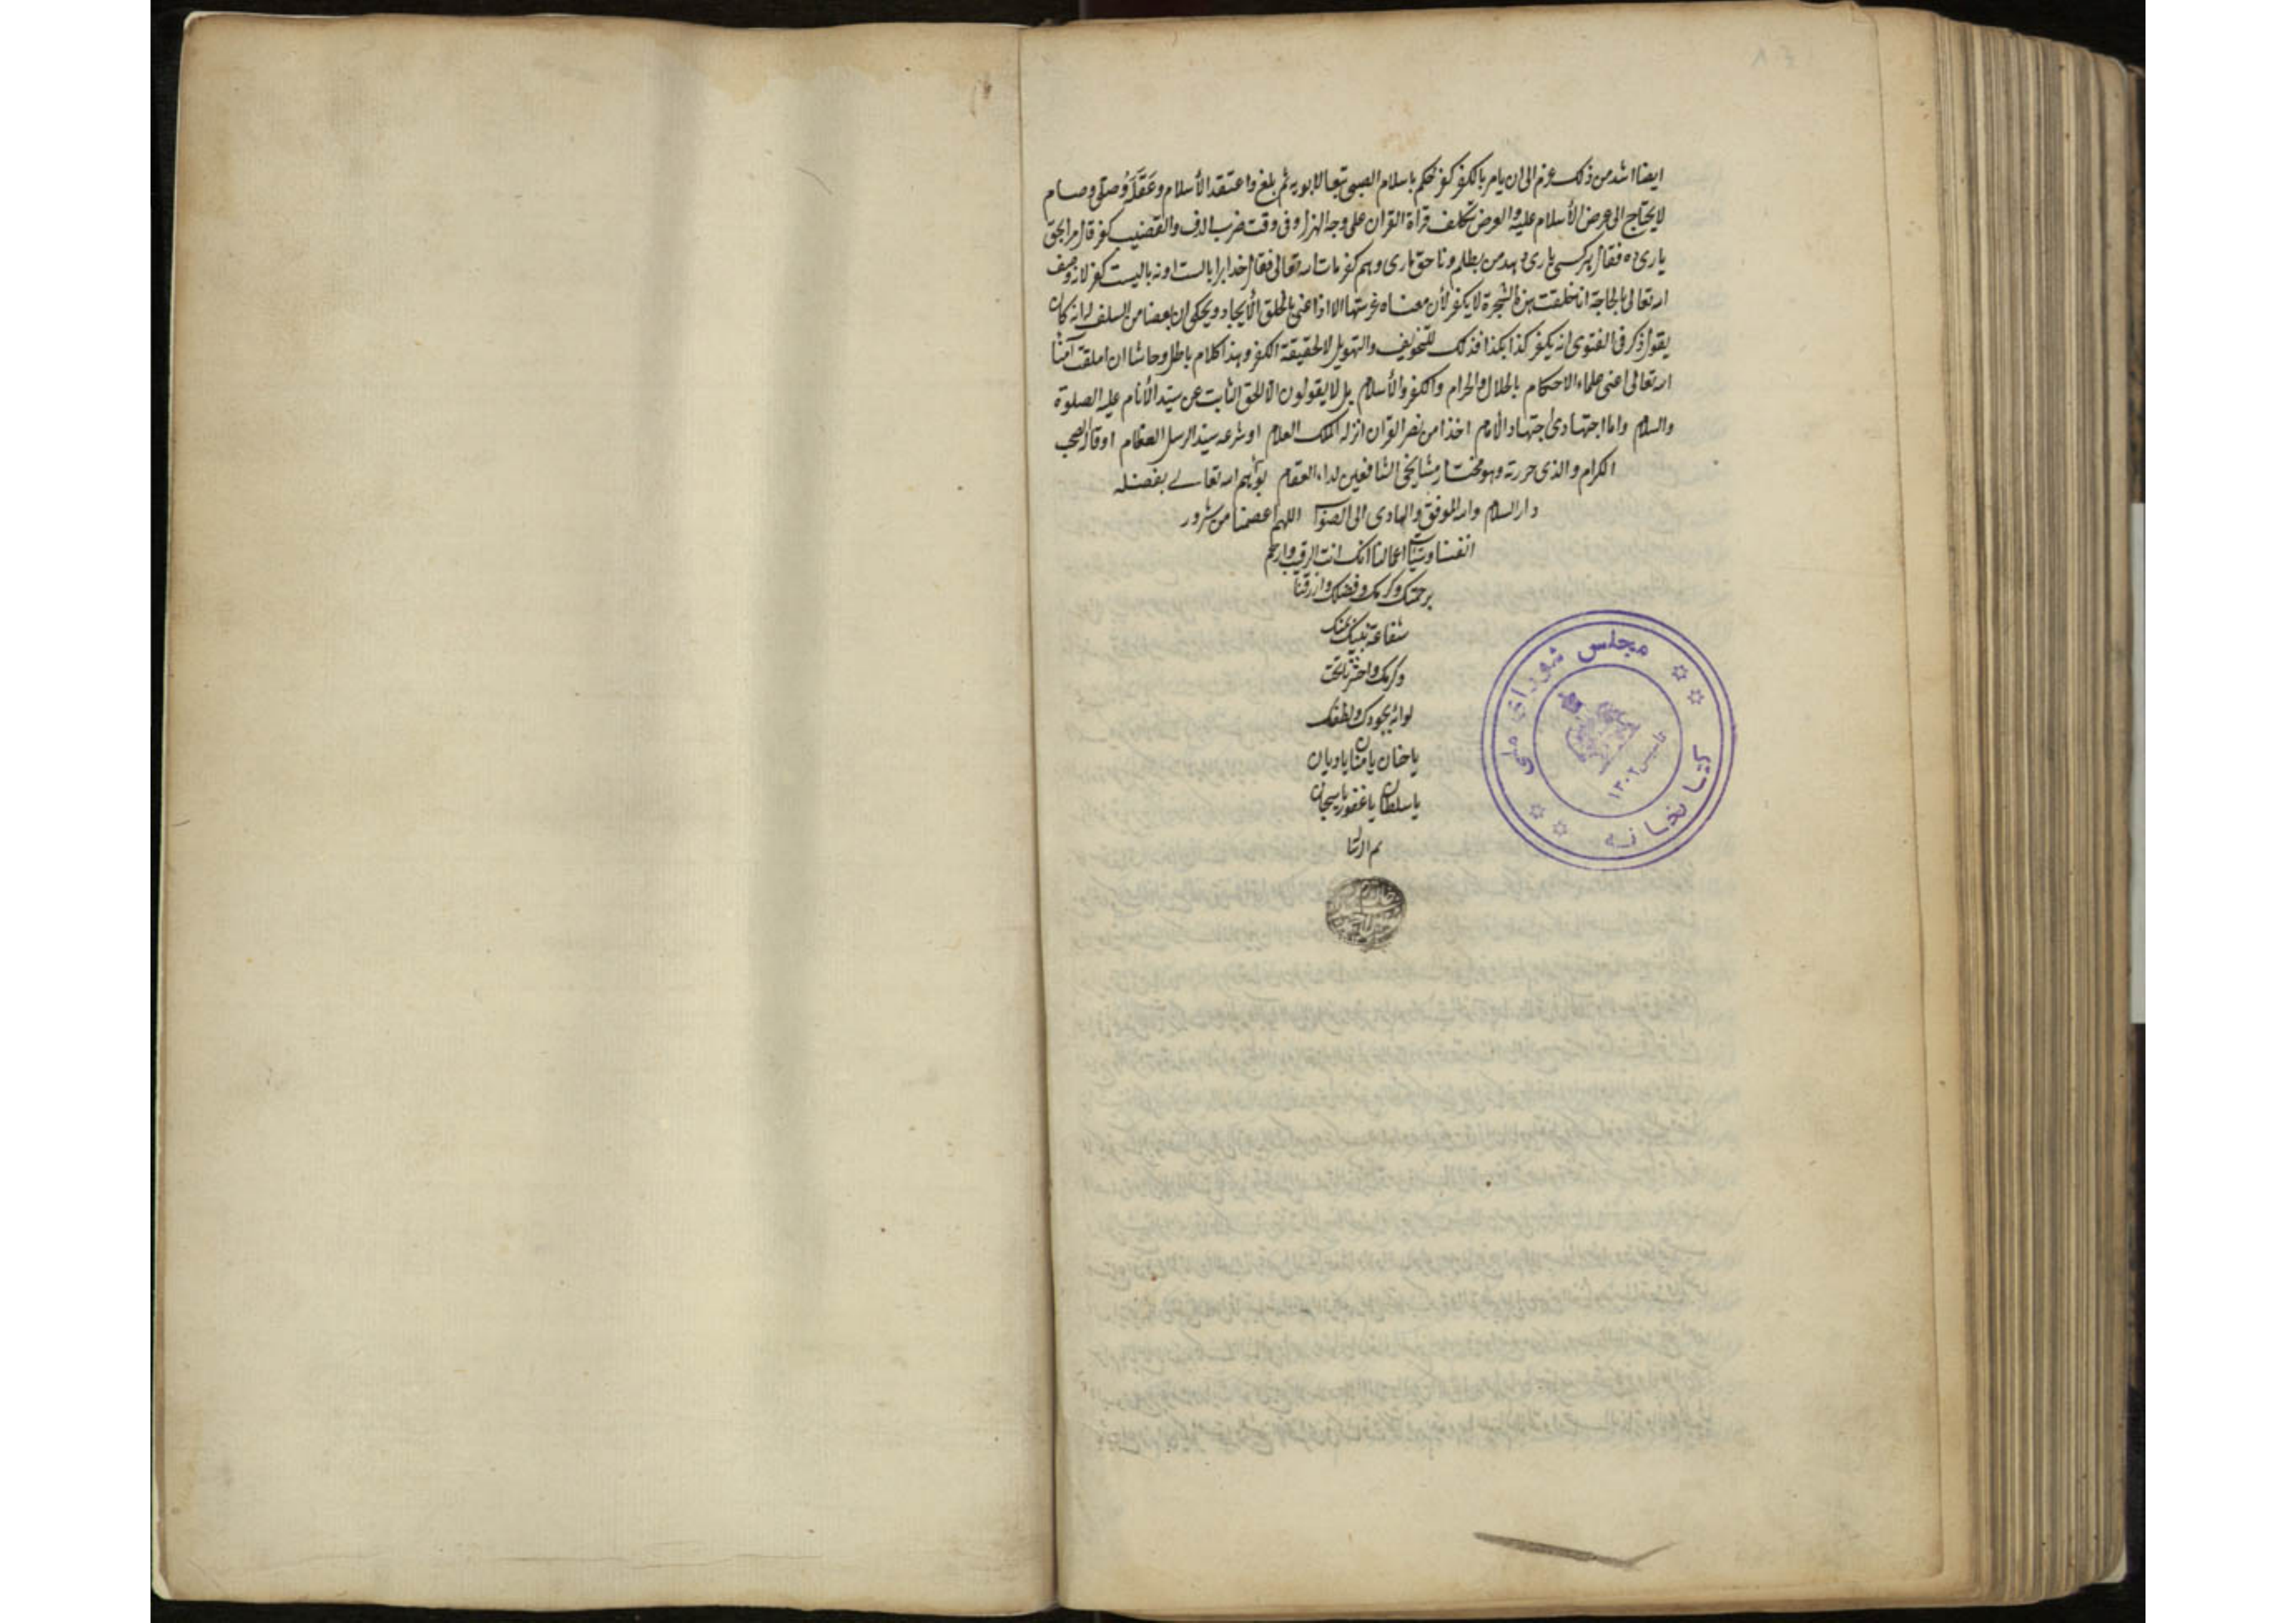 ايضا اشد من ذلك عزم الى ان يامر بالكفر كفر حكم باسلام الصبى تبعا لابويه ثم بلغ واعتقد الأسلام وعقله وصلى وصام
لا يحتاج الى عرض الأسلام عليه والعرض تكلف قراة القران على وجه الهزل او فى وقت ضرب الدف والقضيب كفر قال مرا بحق
يارى ده فقال هر كسى يارى دهد من بظلم وناحق يارى دهم كفر مات الله تعالى فقال خدايرا
الله تعالى انا خلقت هذه الشجرة لا يكفر لأن معناه غرستها الا اذا عنى بالخلق الأيجاد ويحكى ان بعضا من السلف انه كان
يقول ذكر فى الفتوى انه يكفر كذا بكذا فذلك للتخويف والتهويل لا لحقيقة الكفر وهذا كلام باطل وحاشا ان
الله تعالى اعنى علماء الاحكام بالحلال والحرام والكفر والأسلام بل لا يقولون الا الحق الثابت عن سيد الأنام عليه الصلوة
والسلام واما اجتهادى اجتهاد الأمام اخذا من نص القران انزله الملك العلام او شرعه سيد الرسل العظام او قاله الصحب
الكرام والذى حررته وهو مختار مشايخى الشافعين لداء العقام بوأهم الله تعالى بفضله
دار السلام والله الموفق والهادى الى الصواب اللهم اعصمنا من شرور
انفسنا وسيئات اعمالنا انك انت الرقيب وارحم
برحمتك وكرمك وفضلك وارزقنا
شفاعة نبيك بمنك
وكرمك واحشرنا تحت
لوائه بجودك ولطفك
يا حنان يا منان يا ديان
يا سلطان يا غفور يا سبحان
تم
مجلس شورای ملی
کتابخانه
تاسیس ۱۳۰۲